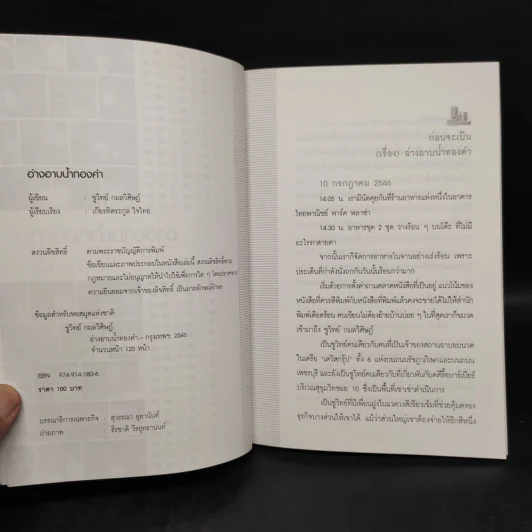 อ่างอาบน้ำทองคำ
ผู้เขียน : ชูวิทย์ กมลวิศิษฎ์
ผู้เรียบเรียง : เกียรติตระกูล ใจไทย
สงวนลิขสิทธิ์ ตามพระราชบัญญัติการพิมพ์
ข้อเขียนและภาพประกอบในหนังสือเล่มนี้ สงวนลิขสิทธิ์ตาม
กฎหมายและไม่อนุญาตให้นำไปใช้เพื่อการใด ๆ โดยปราศจาก
ความยินยอมจากเจ้าของลิขสิทธิ์ เป็นลายลักษณ์อักษร
ข้อมูลสำหรับหอสมุดแห่งชาติ
ชูวิทย์ กมลวิศิษฎ์
อ่างอาบน้ำทองคำ.- กรุงเทพฯ: 2546
จำนวนหน้า 120 หน้า
ISBN 974-914-180-6
ราคา 100 บาท
บรรณาธิการเฉพาะกิจ : สุวรรณา อุยานันท์
ถ่ายภาพ : ธีรชาติ วีรยุทธานนท์
ก่อนจะเป็น
(เรื่อง) อ่างอาบน้ำทองคำ
10 กรกฎาคม 2546
14.05 น. เรามีนัดคุยกันที่ร้านอาหารแห่งหนึ่งในอาคาร
ไทยพาณิชย์ พาร์ค พลาซ่า
14.30 น. อาหารชุด 2 ชุด วางร้อน ๆ บนโต๊ะ ที่ไม่มี
อะไรรกสายตา
จากนั้นเราก็จัดการอาหารในจานอย่างเร่งร้อน เพราะ
ประเด็นที่กำลังนั่งถกกันวันนั้นร้อนกว่ามาก
เริ่มด้วยการตั้งคำถามตลาดหนังสือที่เป็นอยู่ แนวโน้มของ
หนังสือที่ควรตีพิมพ์กับหนังสือที่พิมพ์แล้วคงจะขายได้ไม่ให้สำนัก
พิมพ์เดือดร้อน คนเขียนไม่ต้องย้ายบ้านบ่อย ๆ ในที่สุดเราก็ขมวด
เข้ามาถึง ชูวิทย์ กมลวิศิษฎ์
เป็นชูวิทย์คนเดียวกับคนที่เป็นเจ้าของสถานอาบอบนวด
ในเครือ "เดวิสกรุ๊ป" ทั้ง 6 แห่งบนถนนรัชดาภิเษกและบนถนน
เพชรบุรี และยังเป็นชูวิทย์คนเดียวกับที่เกี่ยวพันกับคดีรื้อบาร์เบียร์
บริเวณสุขุมวิทซอย 10 ซึ่งเป็นพื้นที่เขาเช่าดำเนินการ
เป็นชูวิทย์ที่มีเพื่อนฝูงในแวดวงสีเขียวเข้มที่ช่วยคุ้มครอง
ธุรกิจบางส่วนให้เขาได้ แม้ว่าส่วนใหญ่เขาต้องจ่ายให้อีกสีหนึ่ง